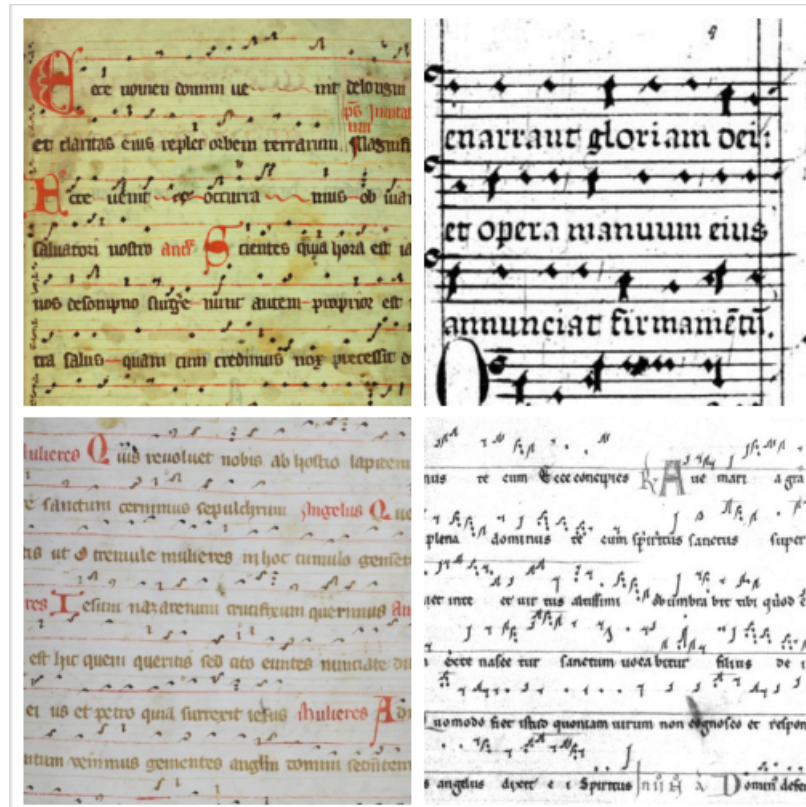 Ecce nomen domini ve nit de longin
et claritas eius replet orbem terrarum Magnifi
Ecce venit ex occurra mus ob viam
salvatori nostro Scientes quia hora est ia
nos desompno surge nunc autem propior est
tra salus quam cum credimus nox precessit d
enarrant gloriam dei:
et opera manuum eius
annunciat firmamētū.
ulieres Quis revolvet nobis ab hostio lapidem
e sanctum cernimus sepulchrum Angelus Q ue
tis ut o tremule mulieres in hoc tumulo gement
res Iesum nazarenum crucifixum querimus
est hic quem queritis sed cito euntes nunciate di
ei us et petro quia surrexit iesus Mulieres Ad
ntum venimus gementes angłm domini sedentem
nus te cum Ecce concipies R Ave mari a gra
plena dominus te cum spiritus sanctus super
iet in te et vir tus altissimi obumbra bit tibi quod
ecce nasce tur sanctum voca bitur filius de i
uomodo fiet istud quoniam virum non cognosco et respon
s angelus dixit e i Spiritus Domin